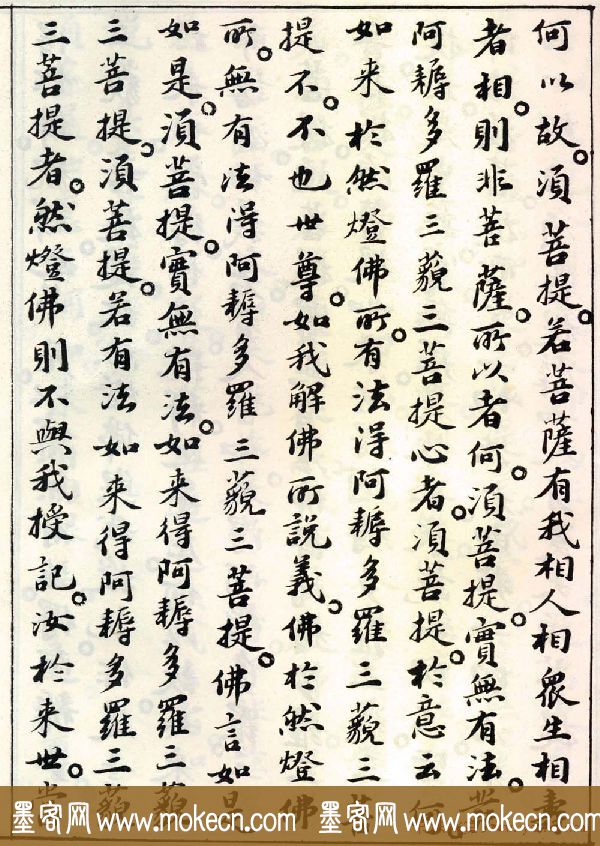 何以故。須菩提。若菩薩有我相人相眾生相壽
者相。則非菩薩。所以者何。須菩提。實無有法。發
阿耨多羅三藐三菩提心者。須菩提。於意云何。
如来於然燈佛所。有法淂阿耨多羅三藐三菩
提不。不也世尊。如我解佛所說義。佛於然燈佛
所。無有法淂阿耨多羅三藐三菩提。佛言如是
如是。須菩提。實無有法。如来淂阿耨多羅三藐
三菩提。須菩提。若有法如来得阿耨多羅三藐
三菩提者。然燈佛則不與我授記。汝於来世。當
墨客网 www.mokecn.com 墨客网 www.mokecn.com